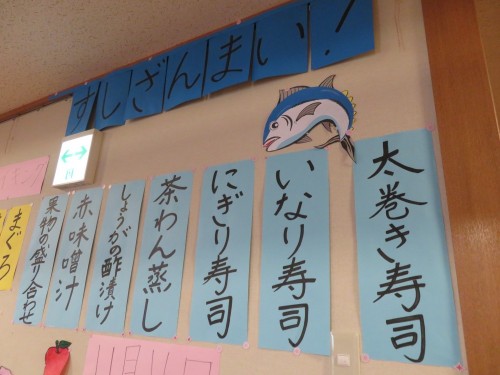 すしざんまい!
太巻き寿司
いなり寿司
にぎり寿司
茶わん蒸し
しょうが酢漬け
赤味噌汁
果物の盛り合わせ
まぐろ